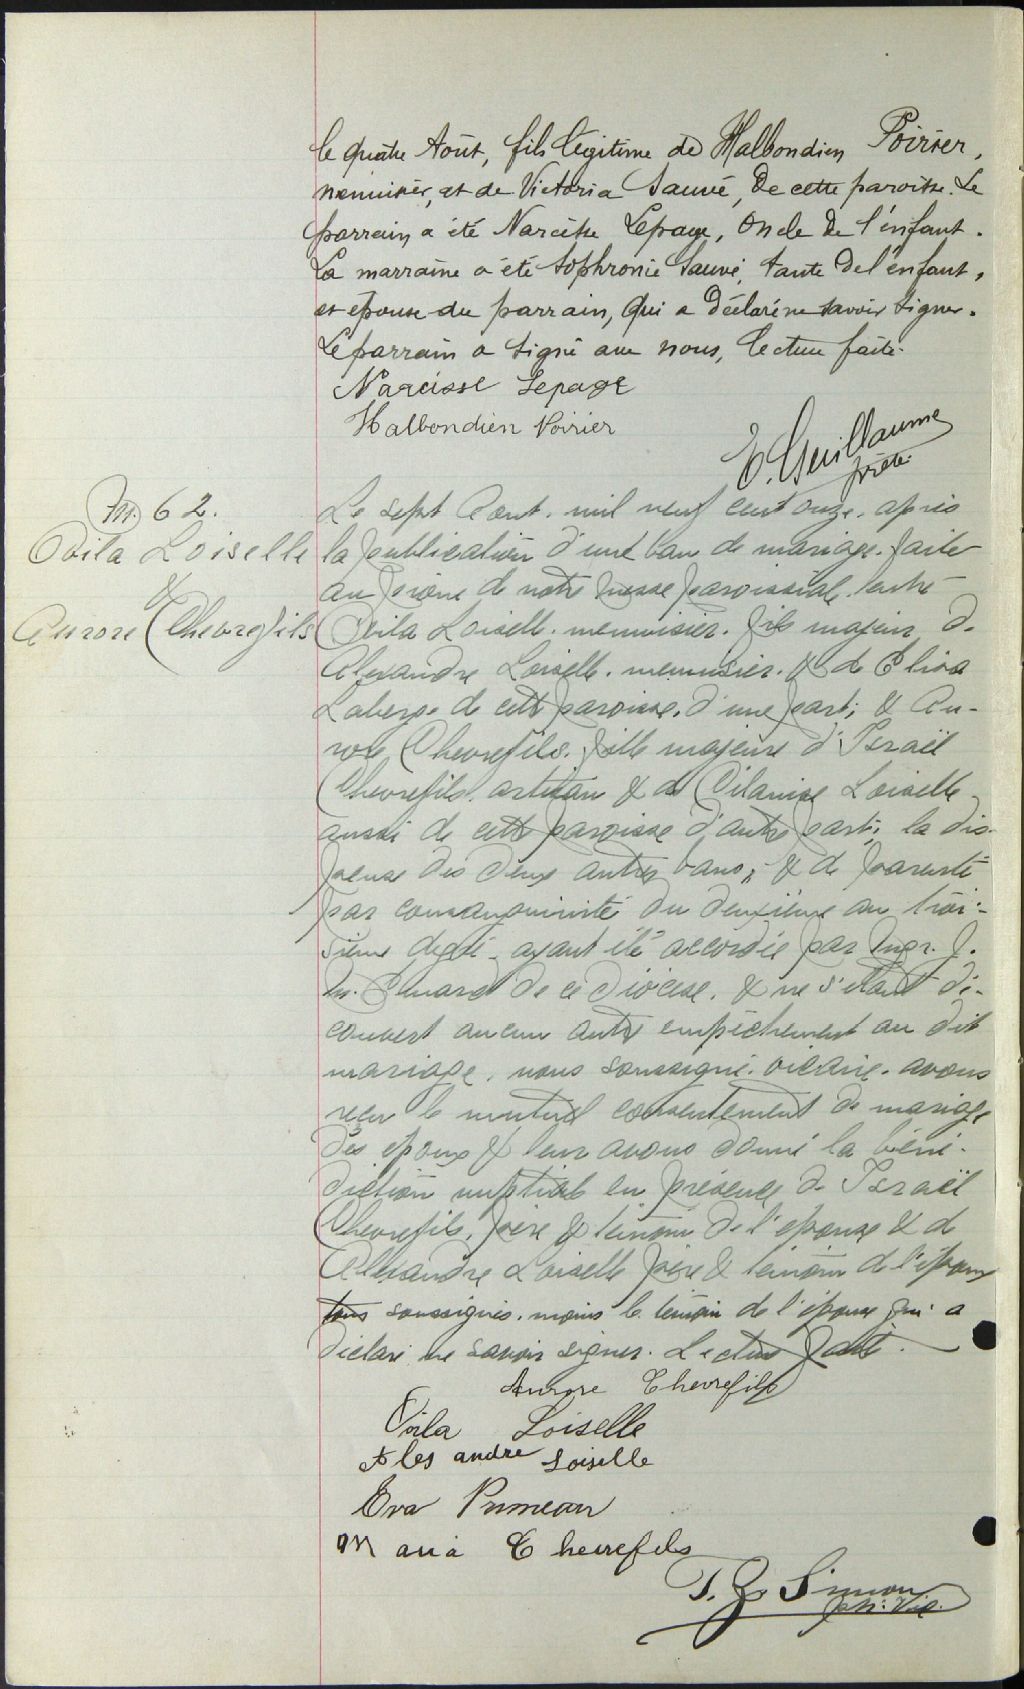 le quatre Août, fils légitime de Halbondien Poirier,
menuisier, et de Victoria Sauvé, de cette paroisse. Le
parrain a été Narcisse Lepage, Oncle de l'enfant.
La marraine a été Sophronie Sauvé, tante de l'enfant,
et épouse du parrain, qui a déclaré ne savoir signer.
Le parrain a signé avec nous, lecture faite.
Narcisse Lepage
Halbondien Poirier
E. Guillaume
prêtre
M. 62.
Ovila Loiselle
&
Aurore Chevrefils
Le sept Aout mil neuf cent onze, après
la publication d'un ban de mariage faite
au prône de notre messe paroissiale entre
Ovila Loiselle, menuisier, fils majeur de
Alexandre Loiselle, menuisier, & de Elisa
Laberge de cette paroisse, d'une part; & Au-
rore Chevrefils, fille majeure d'Israël
Chevrefils, artisan & de Loiselle
aussi de cette paroisse d'autre part; la dis-
pense des deux autres bans, & de parenté
par consanguinité du deuxième au troi-
sième degré ayant été accordée par Mgr. J.
M. Emard de ce diocèse, & ne s'étant dé-
couvert aucun autre empêchement au dit
mariage, nous soussigné, vicaire, avons
reçu le mutuel consentement de mariage
des époux & leur avons donné la béné-
diction nuptiale en présence de Israël
Chevrefils, père & témoin de l'épouse & de
Alexandre Loiselle père & témoin de l'époux
tous soussignés, moins le témoin de l'épouse qui a
déclaré ne savoir signer. Lecture faite.
Aurore Chevrefils
Ovila Loiselle
Alesandre Loiselle
Eva Primeau
Maria Chevrefils
Simon
ptr. Vic.